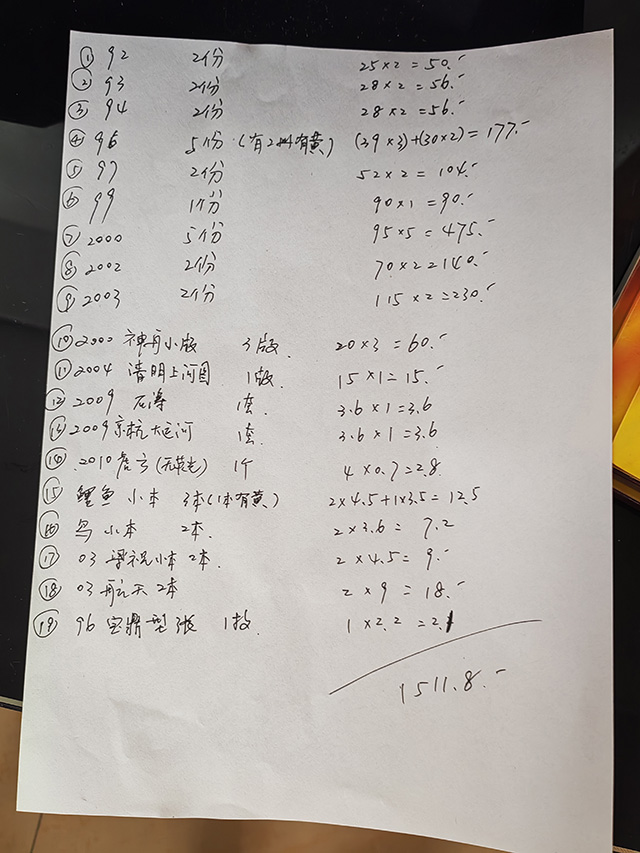 ① 92 2份 25×2=50.-
② 93 2份 28×2=56.-
③ 94 2份 28×2=56.-
④ 96 5份(有2 有黄) (39×3)+(30×2)=177.-
⑤ 97 2份 52×2=104.-
⑥ 99 1份 90×1=90.-
⑦ 2000 5份 95×5=475.-
⑧ 2002 2份 70×2=140.-
⑨ 2003 2份 115×2=230.-
⑩ 2000 神舟小版 3版. 20×3=60.-
⑪ 2004 清明上河图 1版. 15×1=15.-
⑫ 2009 石涛 1套 3.6×1=3.6
⑬ 2009 京杭大运河 1套 3.6×1=3.6
⑭ 2010 1个 4×0.7=2.8
⑮ 鲤鱼小本 3本(1本有黄) 2×4.5+1×3.5=12.5
⑯ 鸟小本 2本. 2×3.6=7.2
⑰ 03 梁祝小本 2本. 2×4.5=9.-
⑱ 03 航天 2本 2×9=18.-
⑲ 96 宝鼎型张 1枚. 1×2.2=2.1
1511.8.-